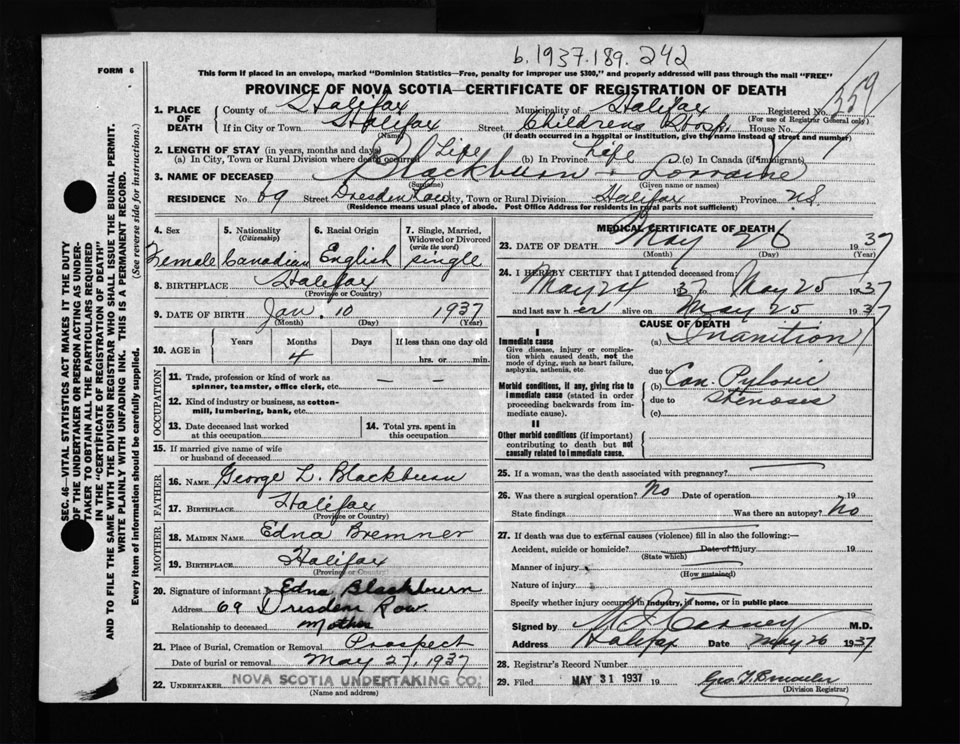 b.1937.189.242
FORM 6
This form if placed in an envelope, marked "Dominion Statistics—Free, penalty for improper use $300," and properly addressed will pass through the mail "FREE"
PROVINCE OF NOVA SCOTIA—CERTIFICATE OF REGISTRATION OF DEATH
1. PLACE OF DEATH County of Halifax Municipality of Halifax Registered No. 359
(For use of Registrar General only)
If in City or Town Halifax Street Childrens Hosp. House No.
(Name) (If death occurred in a hospital or institution, give the name instead of street and number)
2. LENGTH OF STAY (in years, months and days)
(a) In City, Town or Rural Division where death occurred Life (b) In Province Life (c) In Canada (if immigrant)
3. NAME OF DECEASED Blackburn Lorraine
(Surname) (Given name or names)
RESIDENCE No. 69 Street Dresden Row City, Town or Rural Division Halifax Province N.S.
(Residence means usual place of abode. Post Office Address for residents in rural parts not sufficient)
4. Sex 5. Nationality (Citizenship) 6. Racial Origin 7. Single, Married, Widowed or Divorced (write the word)
Female Canadian English single
8. BIRTHPLACE Halifax
(Province or Country)
9. DATE OF BIRTH Jan. 10 1937
(Month) (Day) (Year)
10. AGE in Years Months Days If less than one day old
4 hrs. or min.
OCCUPATION
11. Trade, profession or kind of work as spinner, teamster, office clerk, etc. — —
12. Kind of industry or business, as cotton-mill, lumbering, bank, etc.
13. Date deceased last worked at this occupation 14. Total yrs. spent in this occupation
15. If married give name of wife or husband of deceased
FATHER
16. NAME George L. Blackburn
17. BIRTHPLACE Halifax
(Province or Country)
MOTHER
18. MAIDEN NAME Edna Bremner
19. BIRTHPLACE Halifax
(Province or Country)
20. Signature of informant Edna Blackburn
Address 69 Dresden Row
Relationship to deceased Mother
21. Place of Burial, Cremation or Removal Prospect
Date of burial or removal May 27, 1937
22. UNDERTAKER NOVA SCOTIA UNDERTAKING CO.
(Name and address)
MEDICAL CERTIFICATE OF DEATH
23. DATE OF DEATH May 26 1937
(Month) (Day) (Year)
24. I HEREBY CERTIFY that I attended deceased from:
May 24 1937 May 25 1937
and last saw her alive on May 25 1937
CAUSE OF DEATH
I
Immediate cause (a) Inanition
Give disease, injury or complication which caused death, not the mode of dying, such as heart failure, asphyxia, asthenia, etc.
due to
Morbid conditions, if any, giving rise to immediate cause (stated in order proceeding backwards from immediate cause).
(b) Con. Pyloric
due to Stenosis
(c)
II
Other morbid conditions (if important) contributing to death but not causally related to immediate cause.
25. If a woman, was the death associated with pregnancy?
26. Was there a surgical operation? No Date of operation 19
State findings Was there an autopsy? No
27. If death was due to external causes (violence) fill in also the following:—
Accident, suicide or homicide? Date of injury 19
(State which)
Manner of injury
(How sustained)
Nature of injury
Specify whether injury occurred in industry, in home, or in public place
Signed by M.D.
Address Halifax Date May 26 1937
28. Registrar's Record Number
29. Filed MAY 31 1937 19
(Division Registrar)
SEC. 46—VITAL STATISTICS ACT MAKES IT THE DUTY
OF THE UNDERTAKER OR PERSON ACTING AS UNDER-
TAKER TO OBTAIN ALL THE PARTICULARS REQUIRED
IN THE "CERTIFICATE OF REGISTRATION OF DEATH"
AND TO FILE THE SAME WITH THE DIVISION REGISTRAR WHO SHALL ISSUE THE BURIAL PERMIT.
WRITE PLAINLY WITH UNFADING INK. THIS IS A PERMANENT RECORD.
Every item of information should be carefully supplied. (See reverse side for instructions.)